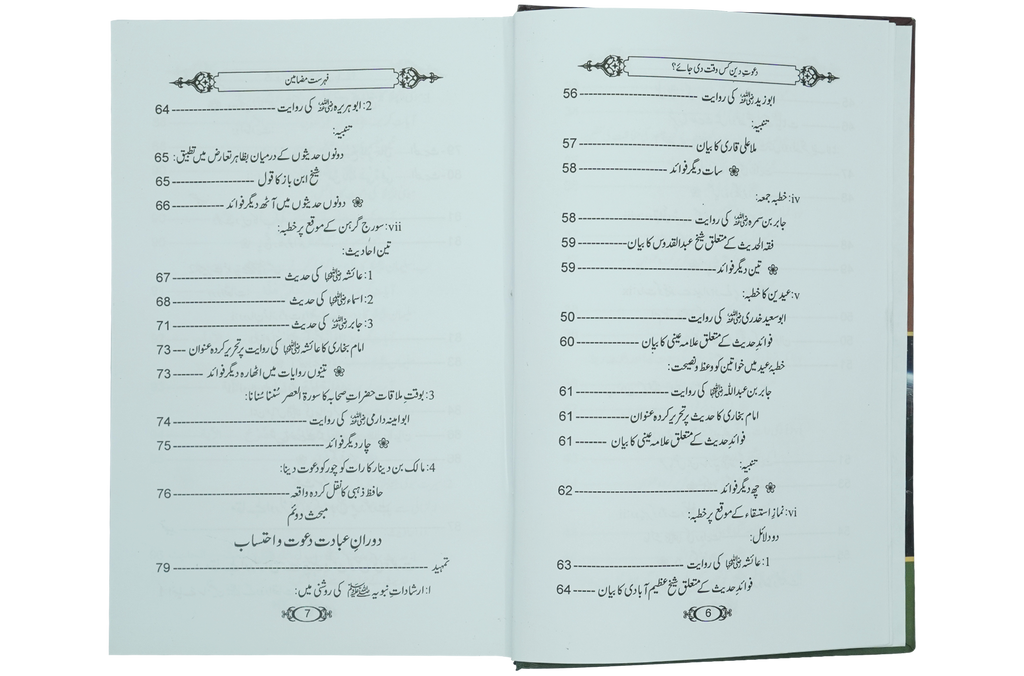 دعوتِ دین کس وقت دی جائے؟
ابوزید رضی اللہ عنہ کی روایت ---------- 56
تنبیہ:
ملا علی قاری کا بیان ---------- 57
❀ سات دیگر فوائد ---------- 58
iv: خطبہ جمعہ:
جابر بن سمرہ رضی اللہ عنہ کی روایت ---------- 58
فقہ الحدیث کے متعلق شیخ عبدالقدوس کا بیان ---------- 59
❀ تین دیگر فوائد ---------- 59
v: عیدین کا خطبہ:
ابوسعید خدری رضی اللہ عنہ کی روایت ---------- 50
فوائدِ حدیث کے متعلق علامہ عینی کا بیان ---------- 60
خطبۂ عید میں خواتین کو وعظ و نصیحت:
جابر بن عبداللہ رضی اللہ عنہما کی روایت ---------- 61
امام بخاری کا حدیث پر تحریر کردہ عنوان ---------- 61
فوائدِ حدیث کے متعلق علامہ عینی کا بیان ---------- 61
تنبیہ:
❀ چھ دیگر فوائد ---------- 62
vi: نمازِ استسقاء کے موقع پر خطبہ:
دو دلائل:
1: عائشہ رضی اللہ عنہا کی روایت ---------- 63
فوائدِ حدیث کے متعلق شیخ عظیم آبادی کا بیان ----- 64
6
فہرست مضامین
2: ابوہریرہ رضی اللہ عنہ کی روایت ---------- 64
تنبیہ:
دونوں حدیثوں کے درمیان بظاہر تعارض میں تطبیق: 65
شیخ ابن باز کا قول ---------- 65
❀ دونوں حدیثوں میں آٹھ دیگر فوائد ---------- 66
vii: سورج گرہن کے موقع پر خطبہ:
تین احادیث:
1: عائشہ رضی اللہ عنہا کی حدیث ---------- 67
2: اسماء رضی اللہ عنہا کی حدیث ---------- 68
3: جابر رضی اللہ عنہ کی حدیث ---------- 71
امام بخاری کا عائشہ رضی اللہ عنہا کی روایت پر تحریر کردہ عنوان --- 73
❀ تینوں روایات میں اٹھارہ دیگر فوائد ------- 73
3: بوقتِ ملاقات حضراتِ صحابہ کا سورۃ العصر سُننا سُنانا:
ابوامینہ دارمی رضی اللہ عنہ کی روایت ---------- 74
❀ چار دیگر فوائد ---------- 75
4: مالک بن دینار کا رات کو چور کو دعوت دینا:
حافظ ذہبی کا نقل کردہ واقعہ ---------- 76
مبحث دوئم
دورانِ عبادت دعوت و احتساب
تمہید ---------- 79
ا: ارشاداتِ نبویہ ﷺ کی روشنی میں:
7